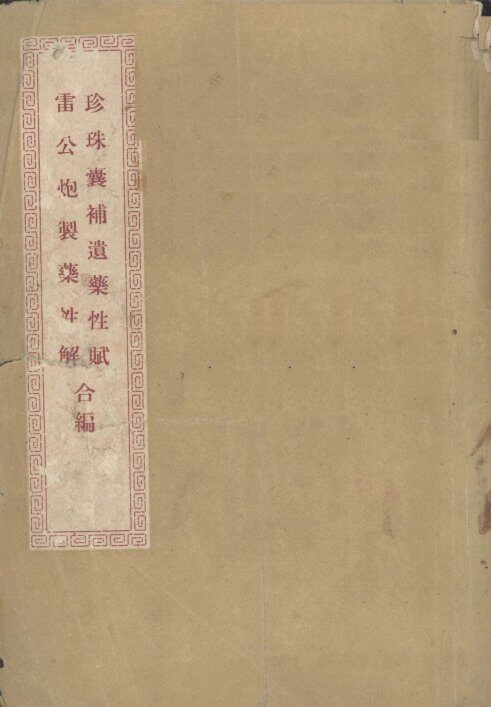 珍珠囊補遺藥性賦
雷公炮製藥性解
合編